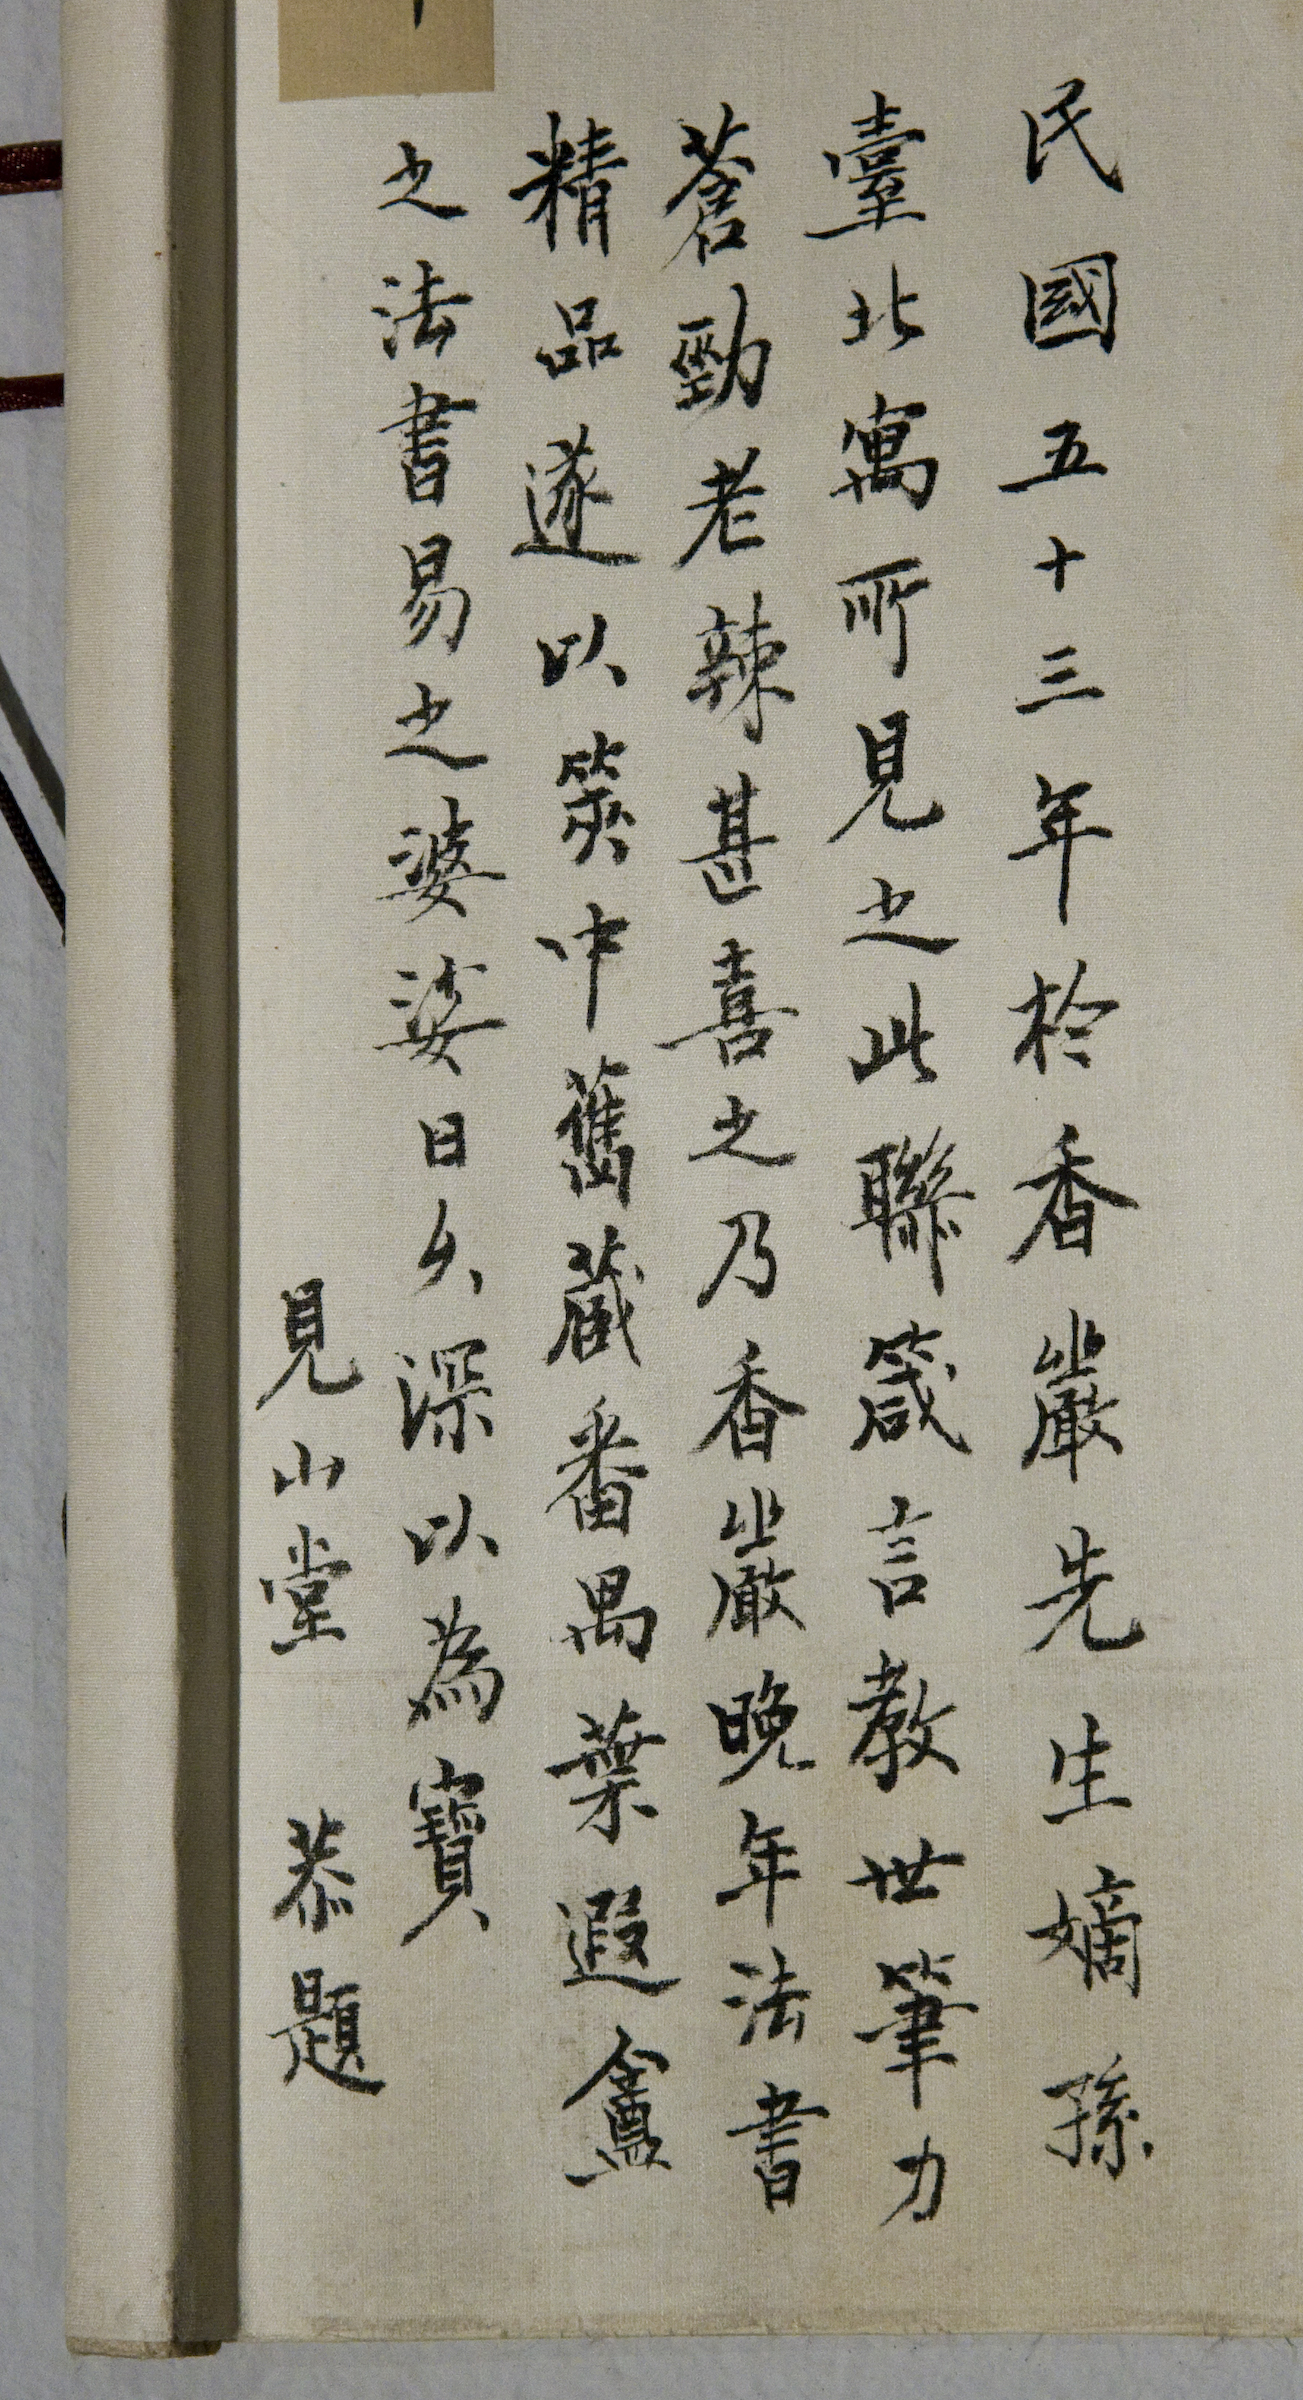 民國五十三年於香巖先生嫡孫
臺北寓所見之此聯箴言教世筆力
蒼勁老辣甚喜之乃香巖晚年法書
精品遂以篋中舊藏番禺葉遐盦
之法書易之婆娑日久深以為寶
見山堂 恭題